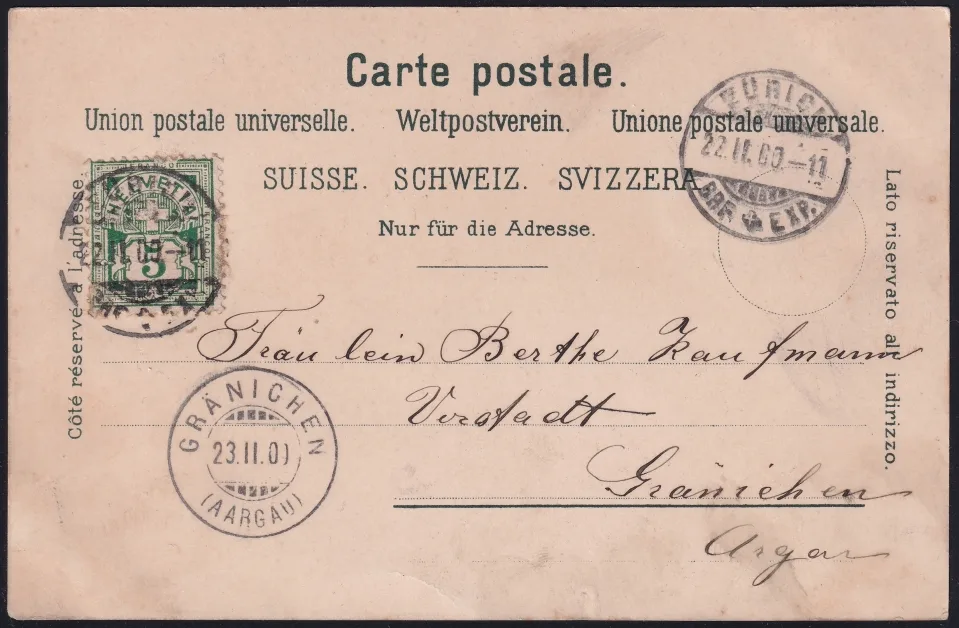 Carte postale.
Union postale universelle. Weltpostverein. Unione postale universale.
SUISSE. SCHWEIZ. SVIZZERA
Nur für die Adresse.
Côté réservé à l'adresse.
Lato riservato all indirizzo.
HELVETIA
FRANCO
5
ZÜRICH
22.II.00.-11
BRF. EXP.
Fräulein Berthe Kaufmann
Vorstadt
Gränichen
Argau
GRÄNICHEN
23.II.00
(AARGAU)